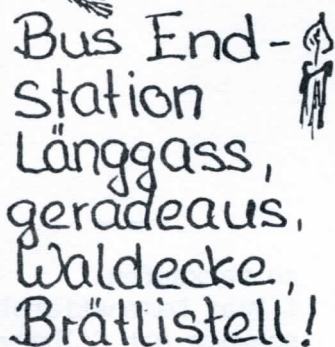 Bus End-
station
Länggass,
geradeaus,
Waldecke,
Brätlistell!